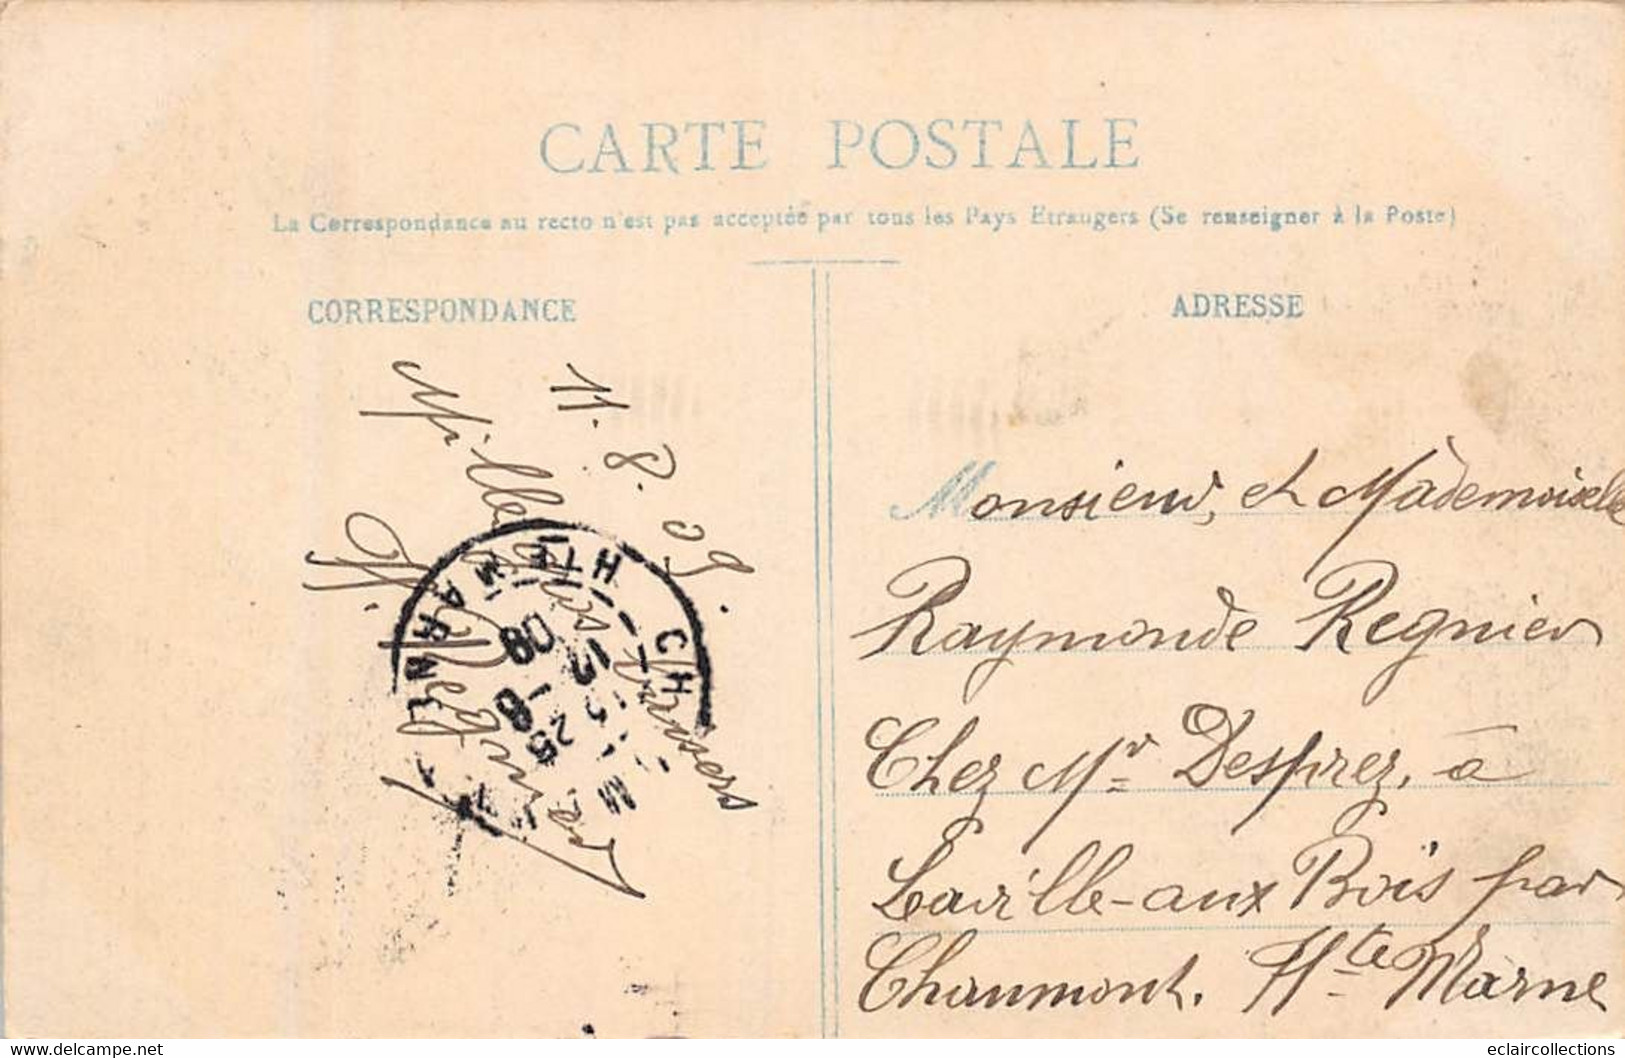 CARTE POSTALE
La Correspondance au recto n'est pas acceptée par tous les Pays Etrangers (Se renseigner à la Poste)
CORRESPONDANCE
ADRESSE
11. 8. 09.
Mille
H. Regnier
CH
HTE MARNE
12
25
8
09
Monsieur, et Mademoiselle
Raymonde Regnier
Chez Mr Desprez, à
Laville-aux Bois par
Chaumont. Hte Marne
www.delcampe.net
eclaircollections